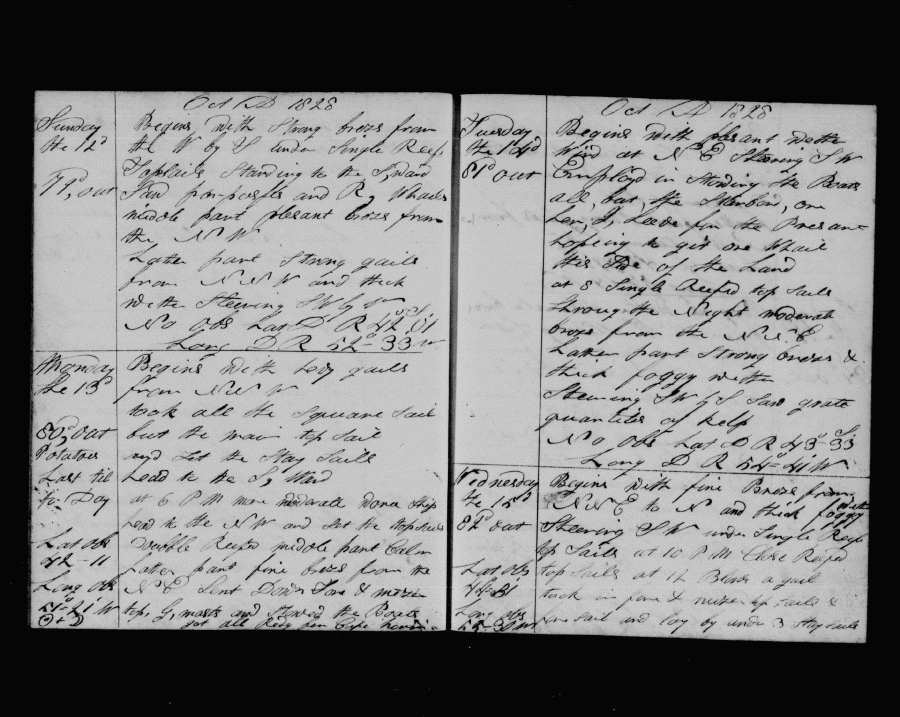 Oct AD 1828
Sunday the 12d
79d, out
Begins With Strong brezs from
the W by S under Single Reef
Topsails Standing to the S, ward
Saw porposses and R, Whales
middle part plesant brezs from
the N W
Latter part Strong gails
from N N W and thick
wether Steering S W by W
No Obs Lat D R 42 01 S
Long D R 52-33 W
Monday
the 13d
80d, out
Potatoes
Last til
to Day
Lat Obs
42-11
Long Obs
51-21 W
Begins With hevy gails
from N N W
took all the Squuare Sail
but the main top Sail
and Set the Stay Sails
head to the S, Ward
at 6 P M more moderate wore Ship
head to the N W and Set the topsails
Dubble Reefed middle part Calm
Latter part fine brezs from the
N E Sent Down Fore & mizen
top, G, masts and Stowed the Boats
got all Redy for Cape
Oct AD 1828
Tuesday
the 14d
81d out
Begins with plesant wether
Wind at N E Steering S W
Employd in Stowing the Boats
all, but, the Starbord, one
her, I, Leave for the Presant
hopeing to git one Whale
this Side of the Land
at 8 Single Reefed top sails
through the Night moderate
brezs from the N N E
Latter part Strong brezes &
thick foggy wether
Steering S W by S Saw grate
quantites of kelp
No Obs Lat D R 43-33 S
Long D R 54-41 W
Wednesday
the 15d
82d out
Lat obs
Long obs
Begins with fine Brezes from
N N E to N and thick foggy wether
Steering S W under Single Reef
top Sails at 10 P M Close Reefed
top sails at 12 Blows a gail
took in fore & mizen top sails &
fore sail and lay by under 3 stay sails